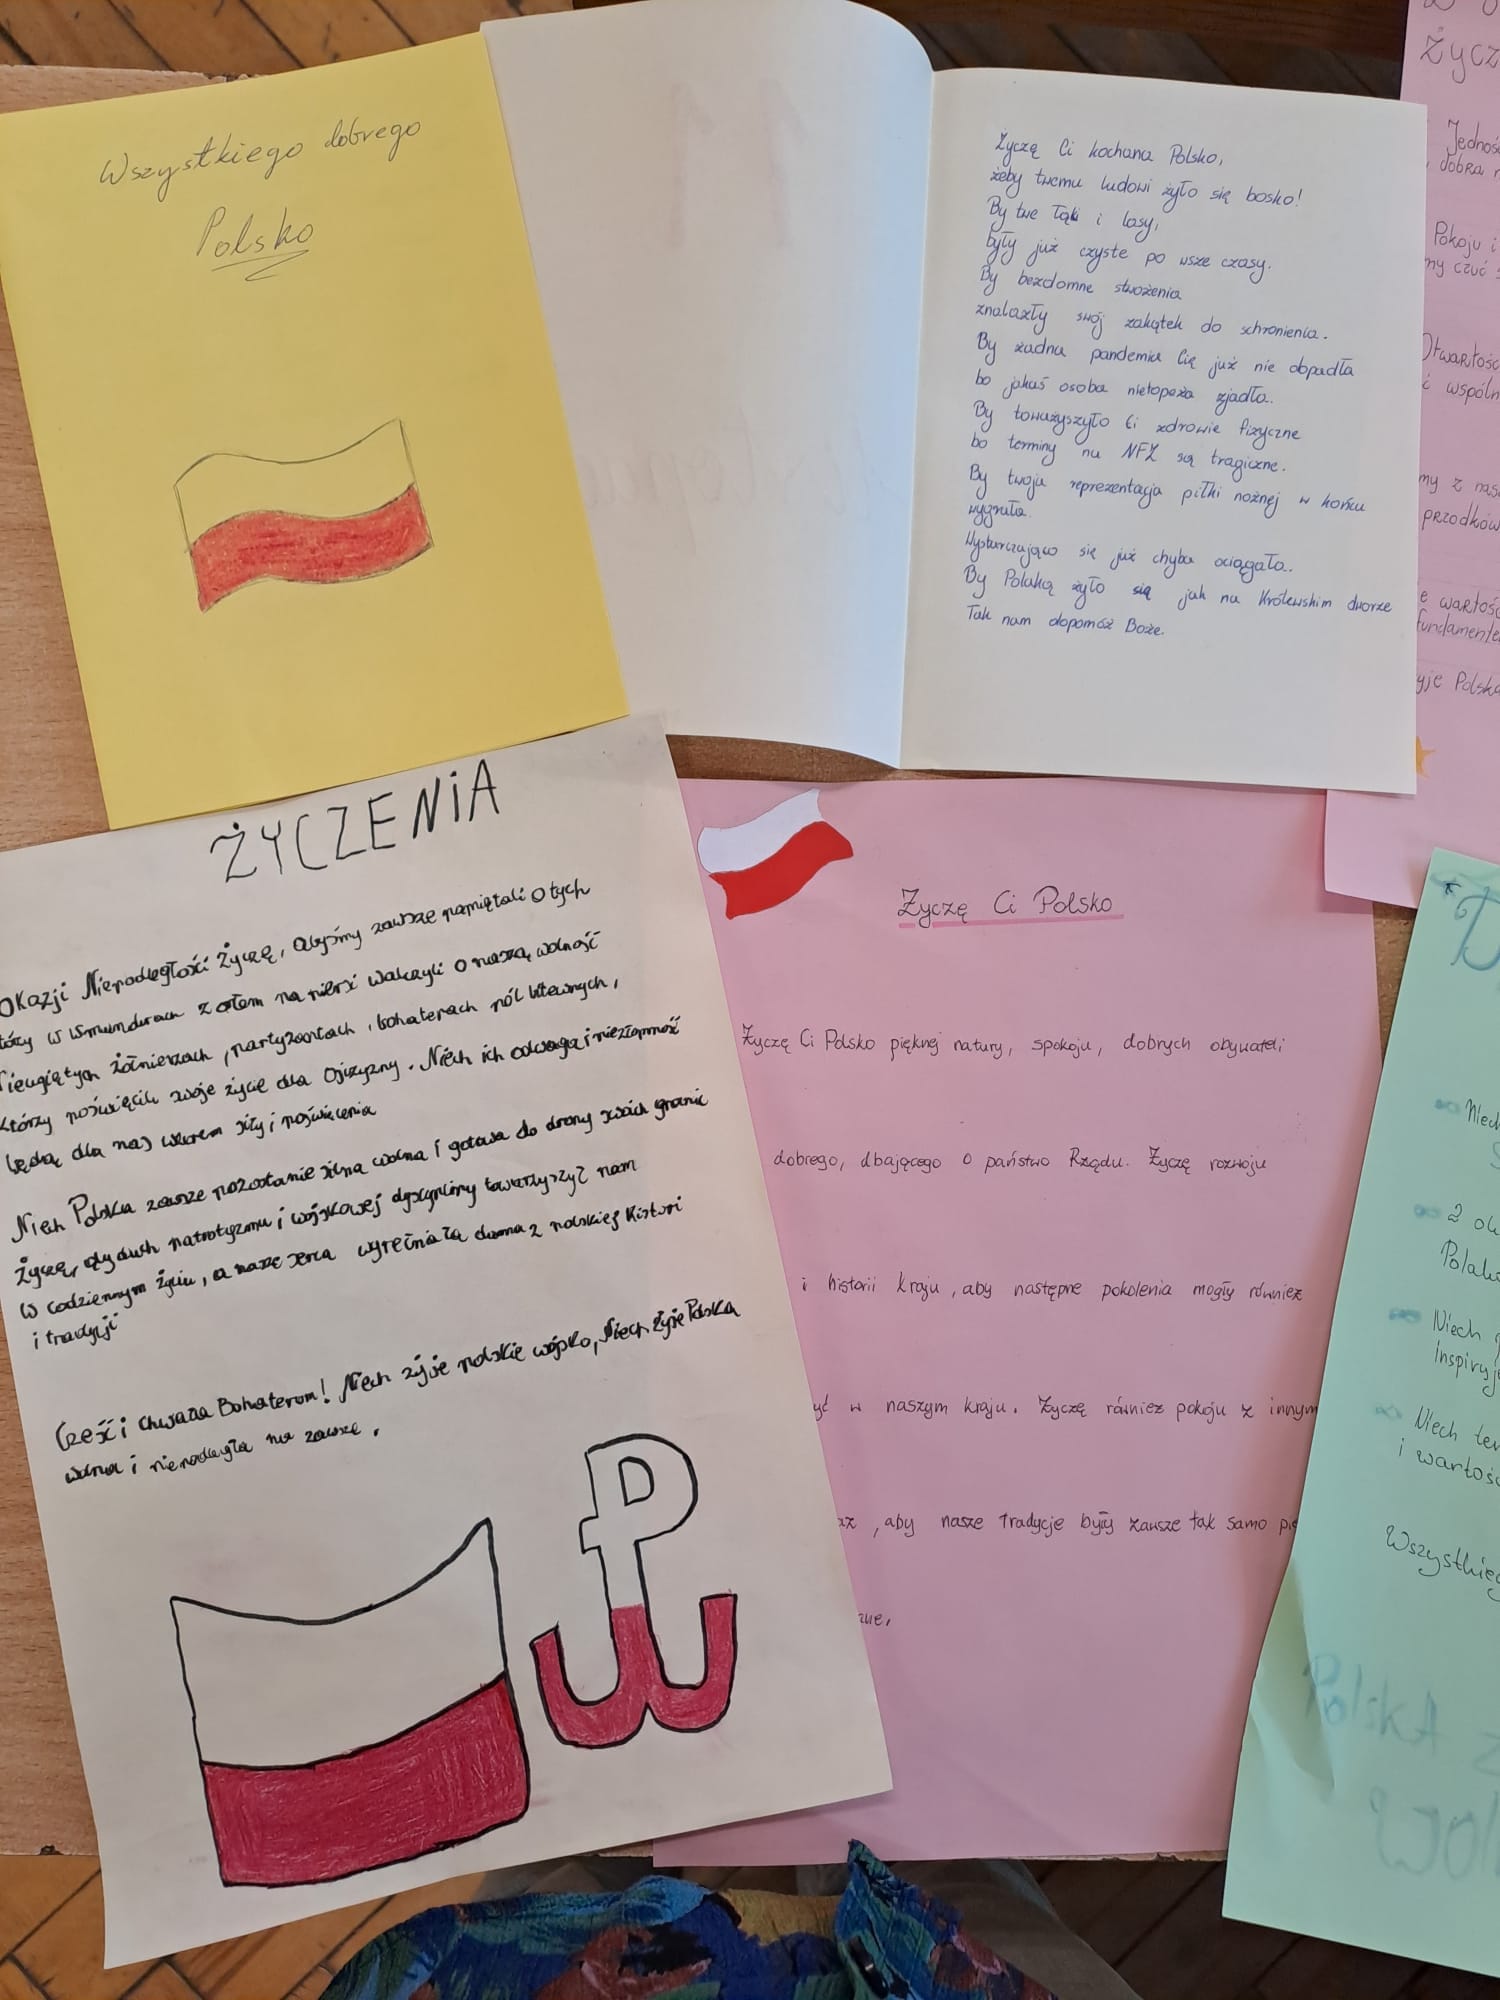 Wszystkiego dobrego
Polsko
Życzę Ci kochana Polsko,
żeby twemu ludowi żyło się bosko!
By twe łąki i lasy,
były już czyste po wsze czasy.
By bezdomne stwożenia
znalazły swój zakątek do schronienia.
By żadna pandemia Cię już nie dopadła
bo jakaś osoba nietopeża zjadła.
By toważyszyło Ci zdrowie fizyczne
bo terminy na NFZ są tragiczne.
By twoja reprezentacja piłki nożnej w końcu
wygrała.
Wystarczająco się już chyba ociągała..
By Polaką żyło się jak na Królewskim dworze
Tak nam dopomóż Boże.
Życz
Jednoś
dobra
Pokoju i
my czuć
Otwartośc
wspóln
my z nas
przodków
e wartośc
fundamente
yje Polska
ŻYCZENiA
okazji Niepodległości Życzę, Abyśmy zawsze pamiętali o tych
tórzy w umundurach z orłem na piersi walczyli o naszą wolność
ieugiętych żołnierzach, partyzantach, bohaterach pól bitewnych,
którzy poświęcili swoje życie dla Ojczyzny. Niech ich odwaga i niezłomność
będą dla nas wzorem siły i poświęcenia
Niech Polska zawsze pozostanie silna wolna i gotowa do obrony swoich granic
Życzę, aby duch patriotyzmu i wojskowej dyscypliny towarzyszył nam
w codziennym życiu, a nasze serca wypełniała duma z polskiej histori
i tradycji
Cześć i chwała Bohaterom! Niech żyje polskie wojsko, Niech żyje Polska
wolna i niepodległa na zawsze.
Życzę Ci Polsko
Życzę Ci Polsko pięknej natury, spokoju, dobrych obywateli
dobrego, dbającego o państwo Rządu. Życzę rozwoju
i historii kraju, aby następne pokolenia mogły również
yć w naszym kraju. Życzę również pokoju z innym
az, aby nasze tradycje były zawsze tak samo pię
zne.
Niech
Z ok
Polak
Niech
inspiruj
Niech ter
i wartośc
Wszystkieg
Polska